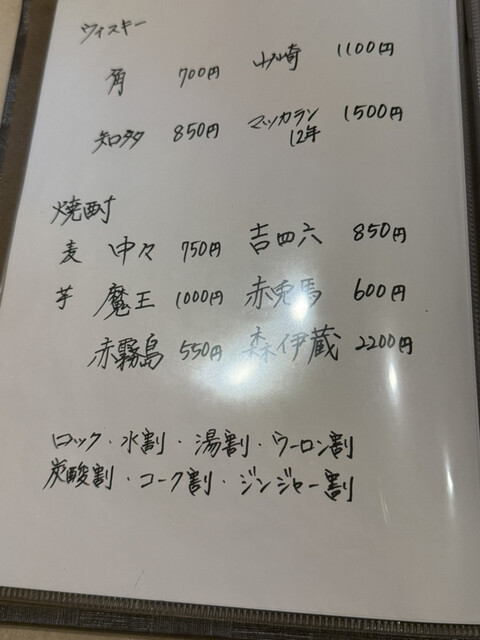 ウィスキー
角 700円 山崎 1100円
知多 850円 マッカラン12年 1500円
焼酎
麦 中々 750円 吉四六 850円
芋 魔王 1000円 赤兎馬 600円
赤霧島 550円 森伊蔵 2200円
ロック・水割・湯割・ウーロン割
炭酸割・コーク割・ジンジャー割